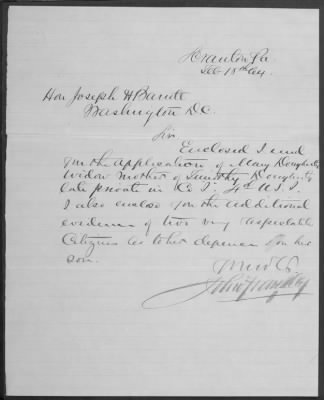 Scranton Pa.
Feb 18th 64.
Hon Joseph H Barrett
Washington D.C.
Sir
Enclosed I send
you the application of Mary Dougherty
Widow Mother of Timothy Dougherty
late private in Co I. 4th U.S.I.
I also enclose you the additional
evidence of two very respectable
Citizens as to her dependence on her
son.
John